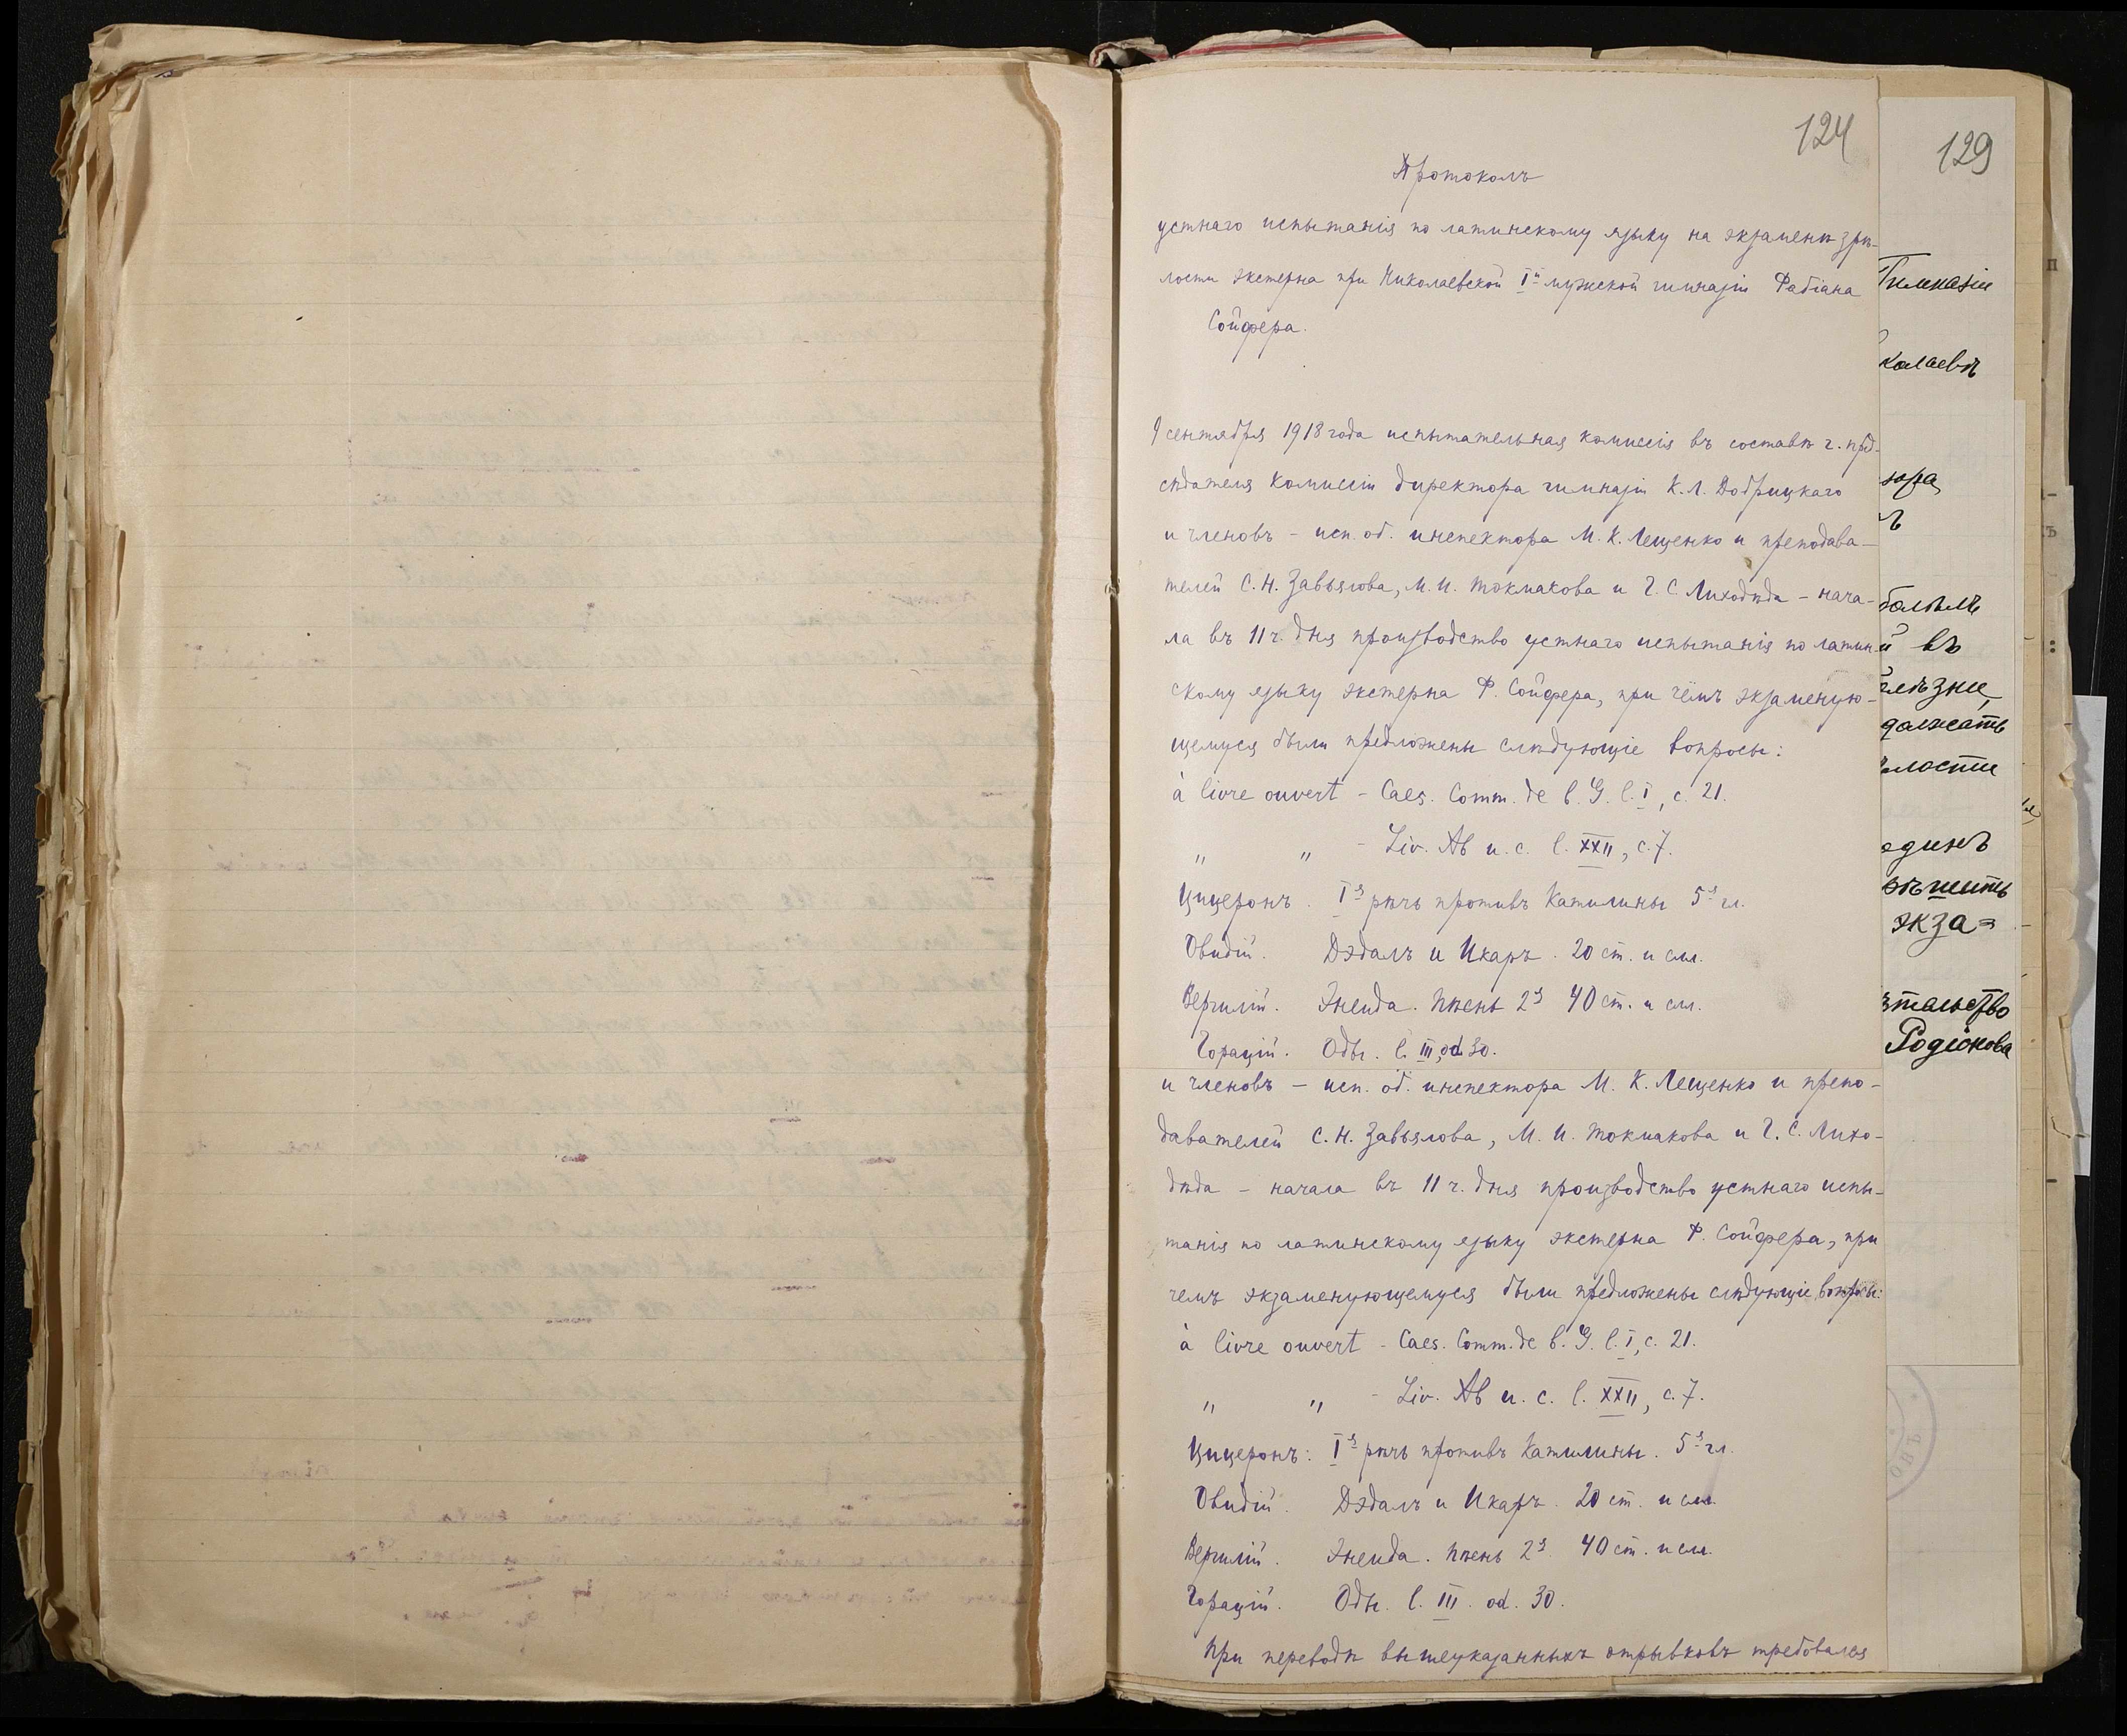 124
Протоколъ
устнаго испытанія по латинскому языку на экзаменѣ зрѣ-
лости экстерна при Николаевской Iй мужской гимназіи Фабіана
Сойфера.
9 сентября 1918 года испытательная комиссія въ составѣ г. пред-
сѣдателя комиссіи директора гимназіи К. Л. Добрицкаго
и членовъ – исп. об. инспектора М. К. Лещенко и преподава-
телей С. Н. Завьялова, М. И. Токмакова и Г. С. Лиходѣда – нача-
ла въ 11 ч. дня производство устнаго испытанія по латин-
скому языку экстерна Ф. Сойфера, при чёмъ экзаменую-
щемуся были предложены слѣдующіе вопросы:
à livre ouvert – Caes. Comm. de b. G. l. I, c. 21.
„ „ – Liv. Ab u. c. l. XXII, c. 7.
Цицеронъ. Iя рѣчь противъ Катилины 5я гл.
Овидій. Дэдалъ и Икаръ. 20 ст. и сл.
Вергилій. Энеида. Пѣснь 2я 40 ст. и сл.
Горацій. Оды. l. III, od. 30.
и членовъ – исп. об. инспектора М. К. Лещенко и препо-
давателей С. Н. Завьялова, М. И. Токмакова и Г. С. Лихо-
дѣда – начала въ 11 ч. дня производство устнаго испы-
танія по латинскому языку экстерна Ф. Сойфера, при
чемъ экзаменующемуся были предложены слѣдующіе вопросы:
à livre ouvert – Caes. Comm. de b. G. l. I, c. 21.
„ „ – Liv. Ab u. c. l. XXII, c. 7.
Цицеронъ: Iя рѣчь противъ Катилины. 5я гл.
Овидій. Дэдалъ и Икаръ. 20 ст. и сл.
Вергилій. Энеида. Пѣснь 2я. 40 ст. и сл.
Горацій. Оды. l. III. od. 30.
При переводѣ вышеуказанныхъ отрывковъ требовался
129
Гимназіи
колаевѣ
въ
должать
лости
единъ
экза=
Родіонова